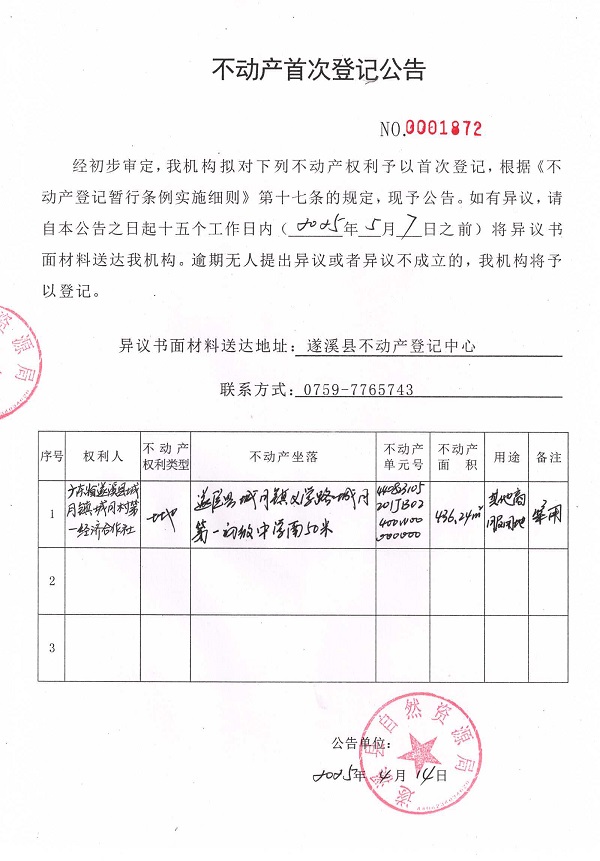 不动产首次登记公告
NO.0001872
经初步审定，我机构拟对下列不动产权利予以首次登记，根据《不
动产登记暂行条例实施细则》第十七条的规定，现予公告。如有异议，请
自本公告之日起十五个工作日内（2025年5月7日之前）将异议书
面材料送达我机构。逾期无人提出异议或者异议不成立的，我机构将予
以登记。
异议书面材料送达地址：遂溪县不动产登记中心
联系方式：0759-7765743
序号 权利人 不动产权利类型 不动产坐落 不动产单元号 不动产面积 用途 备注
1 广东省遂溪县城月镇城月村第一经济合作社 土地 遂溪县城月镇义学路城月第一初级中学南50米 436.24㎡ 其他商服用地
2
3
公告单位：
2025年4月14日
遂溪县自然资源局
资源局